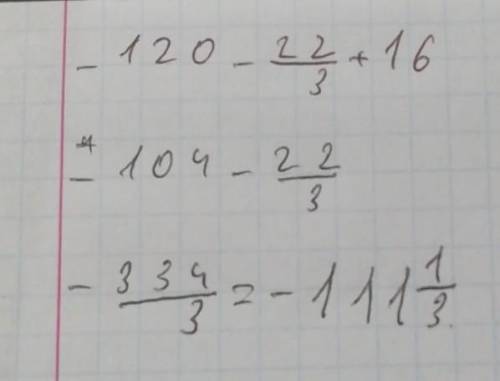 - 120 - 22/3 + 16
- 104 - 22/3
- 334/3 = - 111 1/3